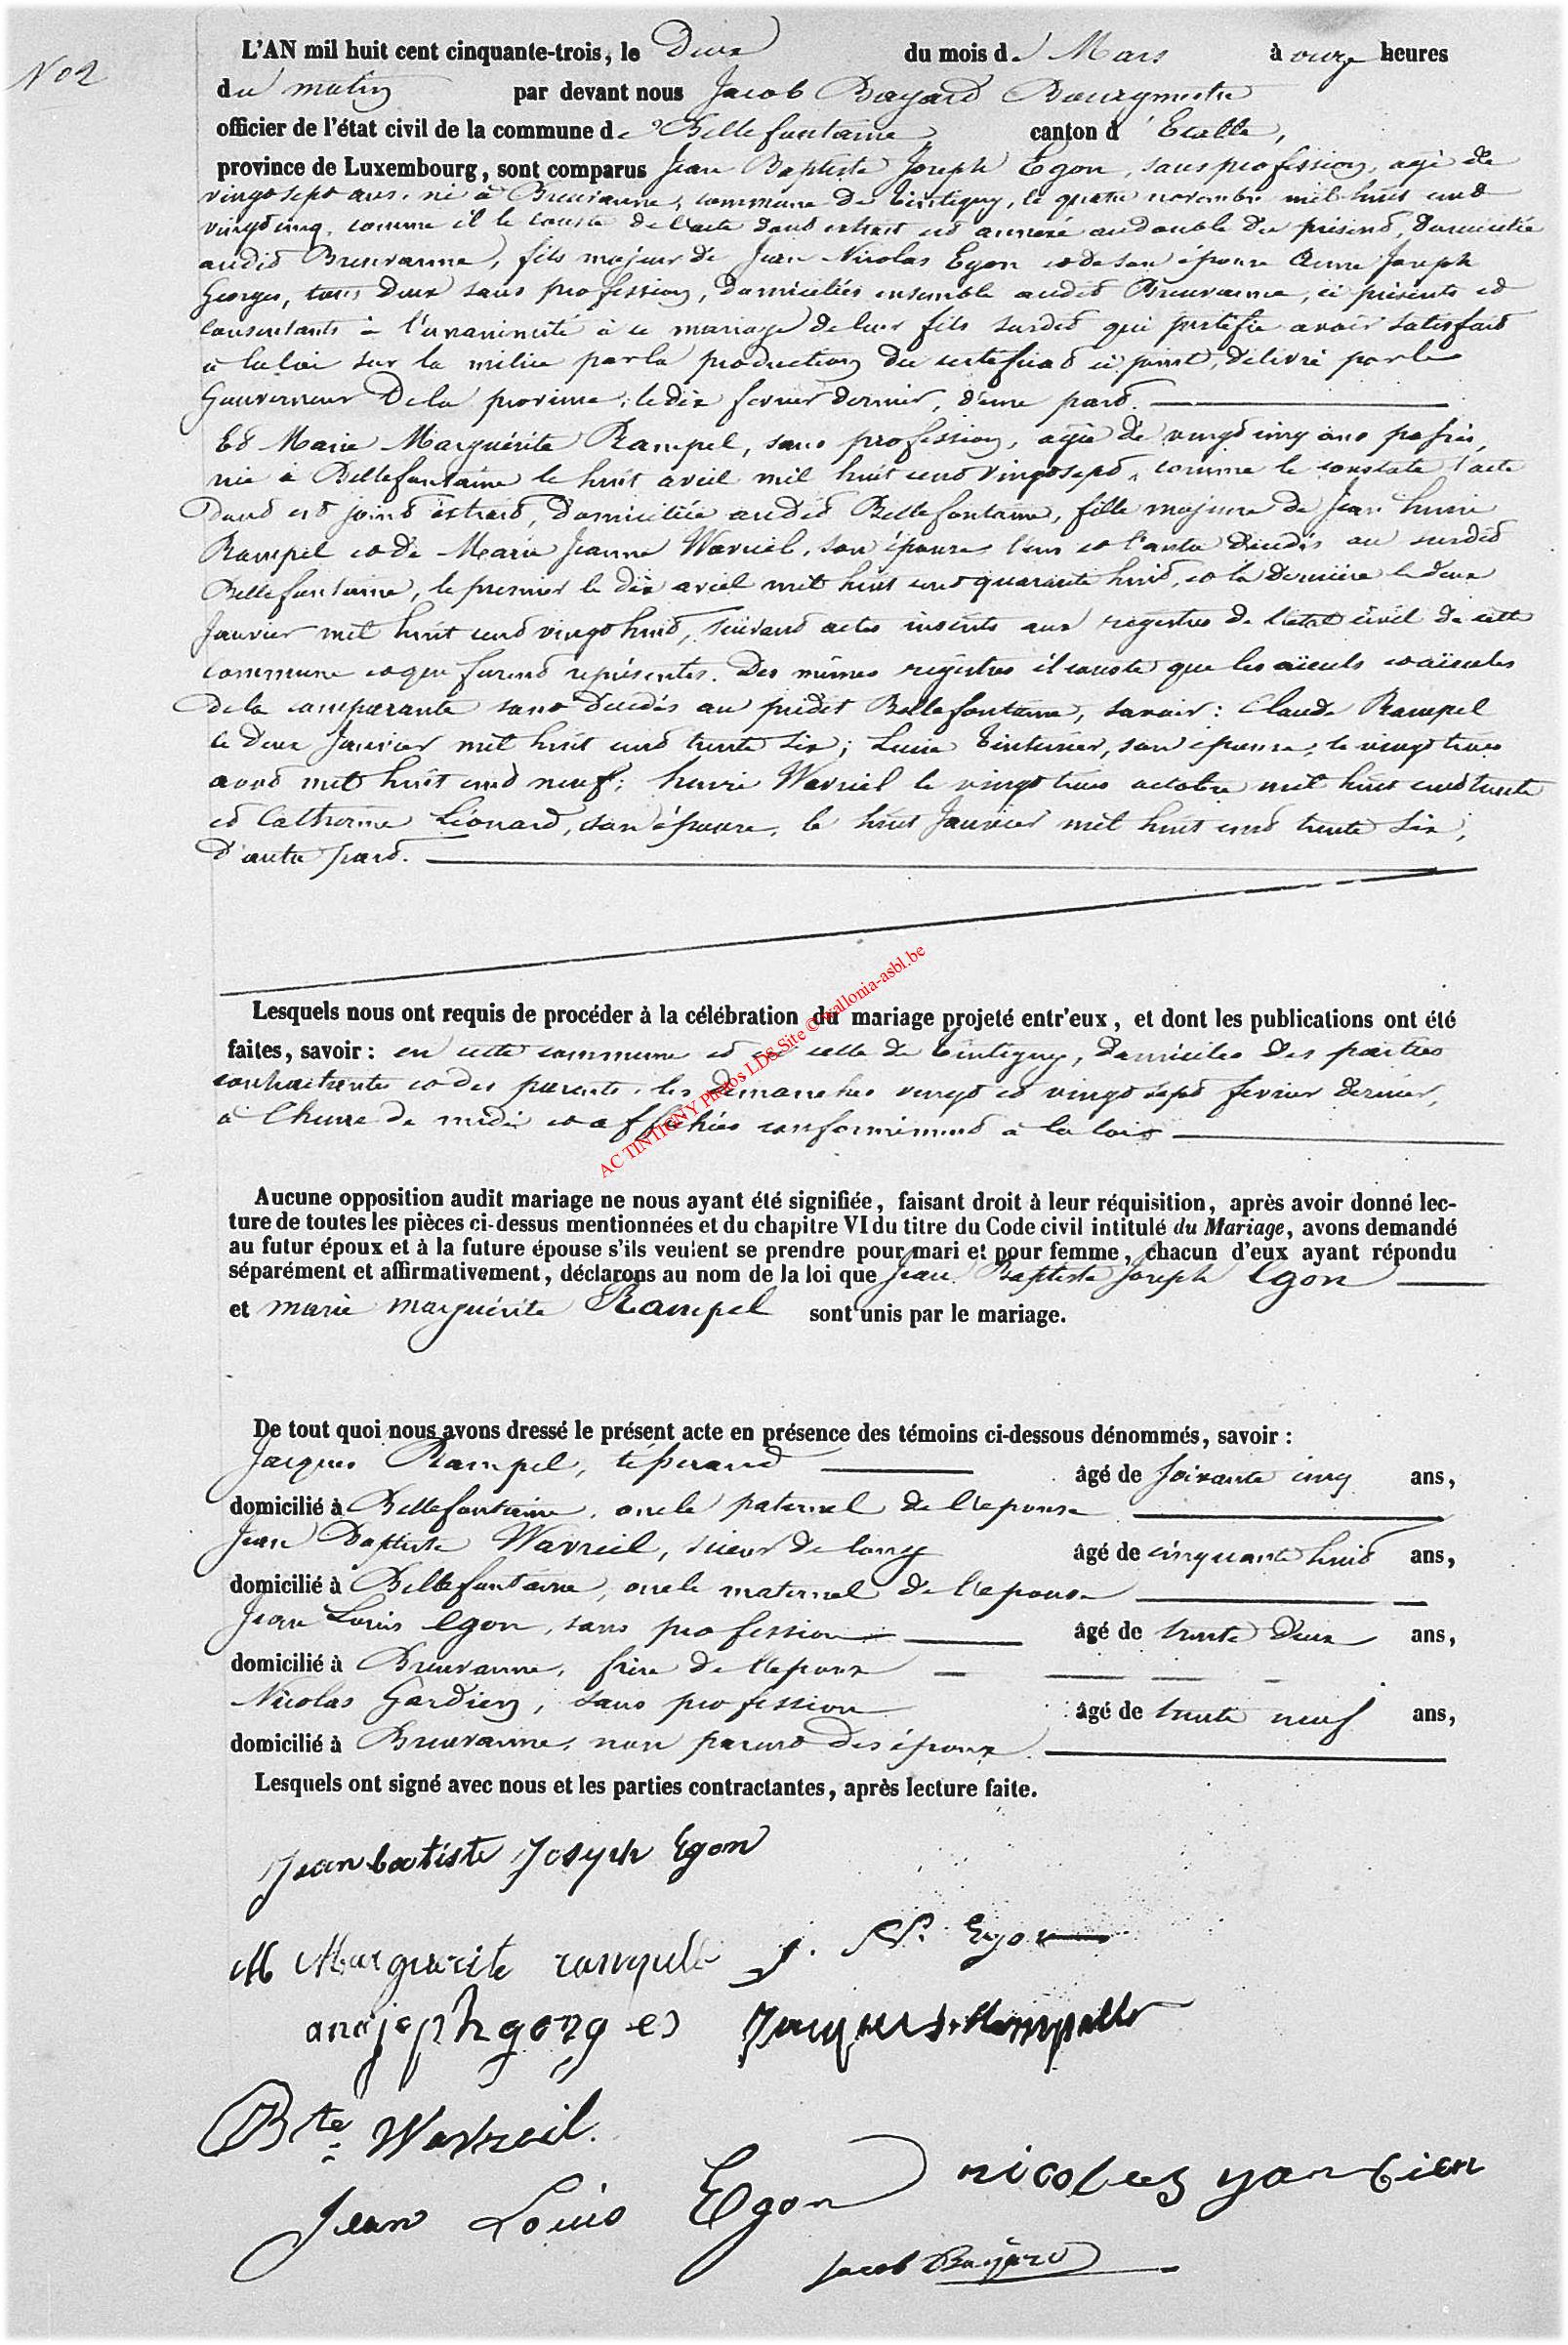 N° 2
L'AN mil huit cent cinquante-trois, le Deux du mois de Mars à onze heures
du matin par devant nous Jacob Bayard Bourgmestre
officier de l'état civil de la commune de Bellefontaine, canton d'Etalle,
province de Luxembourg, sont comparus Jean Baptiste Joseph Egon, sans profession, agé de
vingt sept ans, né à Breuvanne, commune de Tintigny, le quatre novembre mil huit cent
vingt cinq, comme il le conste de l'acte dont extrait est annexé au double du présent, Domicilié
audit Breuvanne, fils majeur de Jean Nicolas Egon et de son épouse Anne Joseph
Georges, tous deux sans profession, domiciliés ensemble audit Breuvanne, ci présents et
consentants à l'unanimité à ce mariage de leur fils susdit qui justifie avoir satisfait
à la loi sur la milice par la production du certificat ci joint, délivré par le
Gouverneur de la province, le dix fevrier dernier, d'une part.
Et Marie Marguérite Rampel, sans profession, agée de vingt cinq ans passés,
née à Bellefontaine le huit avril mil huit cent vingt sept, comme le constate l'acte
dont est joint extrait, domiciliée audit Bellefontaine, fille majeure de Jean henri
Rampel et de Marie Jeanne Wavreil, son épouse, l'un et l'autre décédés au susdit
Bellefontaine, le premier le dix avril mil huit cent quarante huit, et la dernière le deux
Janvier mil huit cent vingt huit, suivant actes inscrits aux registres de l'état civil de cette
commune et qui furent représentés. Des mêmes régistres il conste que les aïeuls et aïeules
de la comparante sont décédés au prédit Bellefontaine, savoir: Claude Rampel
le deux Janvier mil huit cent trente six; Lucie Tinturier, son épouse, le vingt trois
aout mil huit cent neuf; henri Wavreil le vingt trois octobre mil huit cent trente
et Catherine Léonard, son épouse, le huit Janvier mil huit cent trente six,
d'autre part.
Lesquels nous ont requis de procéder à la célébration du mariage projeté entr'eux, et dont les publications ont été
faites, savoir: en cette commune et en celle de Tintigny, domiciles des parties
contractantes et des parents, les dimanches vingt et vingt sept fevrier dernier,
à l'heure de midi et affichées conformément à la loi
AC TINTIGNY Photos LDS Site © wallonia-asbl.be
Aucune opposition audit mariage ne nous ayant été signifiée, faisant droit à leur réquisition, après avoir donné lec-
ture de toutes les pièces ci-dessus mentionnées et du chapitre VI du titre du Code civil intitulé du Mariage, avons demandé
au futur époux et à la future épouse s'ils veulent se prendre pour mari et pour femme, chacun d'eux ayant répondu
séparément et affirmativement, déclarons au nom de la loi que Jean Baptiste Joseph Egon
et marie marguérite Rampel sont unis par le mariage.
De tout quoi nous avons dressé le présent acte en présence des témoins ci-dessous dénommés, savoir:
Jacques Rampel, tisserand âgé de soixante cinq ans,
domicilié à Bellefontaine, oncle paternel de l'epouse
Jean Baptiste Wavreil, scieur de long âgé de cinquante huit ans,
domicilié à Bellefontaine, oncle maternel de l'epouse
Jean Louis Egon, sans profession âgé de trente deux ans,
domicilié à Breuvanne, frère de l'epoux
Nicolas Gardien, sans profession âgé de trente neuf ans,
domicilié à Breuvanne, non parent des époux.
Lesquels ont signé avec nous et les parties contractantes, après lecture faite.
Jean batiste Joseph Egon
M Marguerite rampelle J. N. Egon
anajoseph gorges Jacques Rampelle
Bte Wavreil.
Jean Louis Egon nicolas gardien
Jacob Bayard